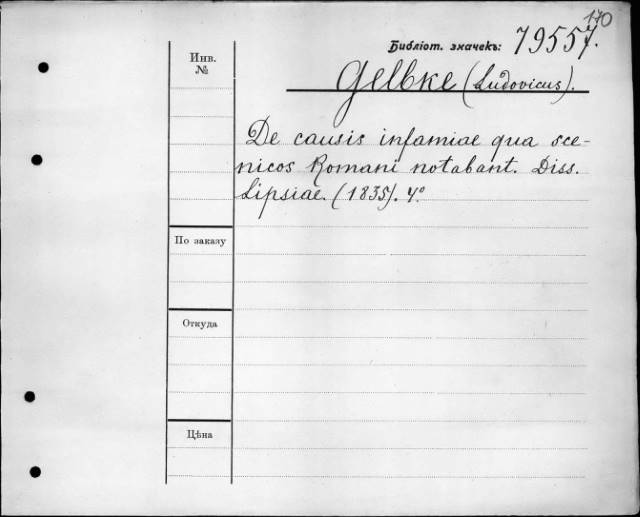 170
Библіот. значекъ: 79557.
Инв.
№
Gelbke (Ludovicus).
De causis infamiae qua sce-
nicos Romani notabant. Diss.
Lipsiae. (1835). 4°
По заказу
Откуда
Цѣна